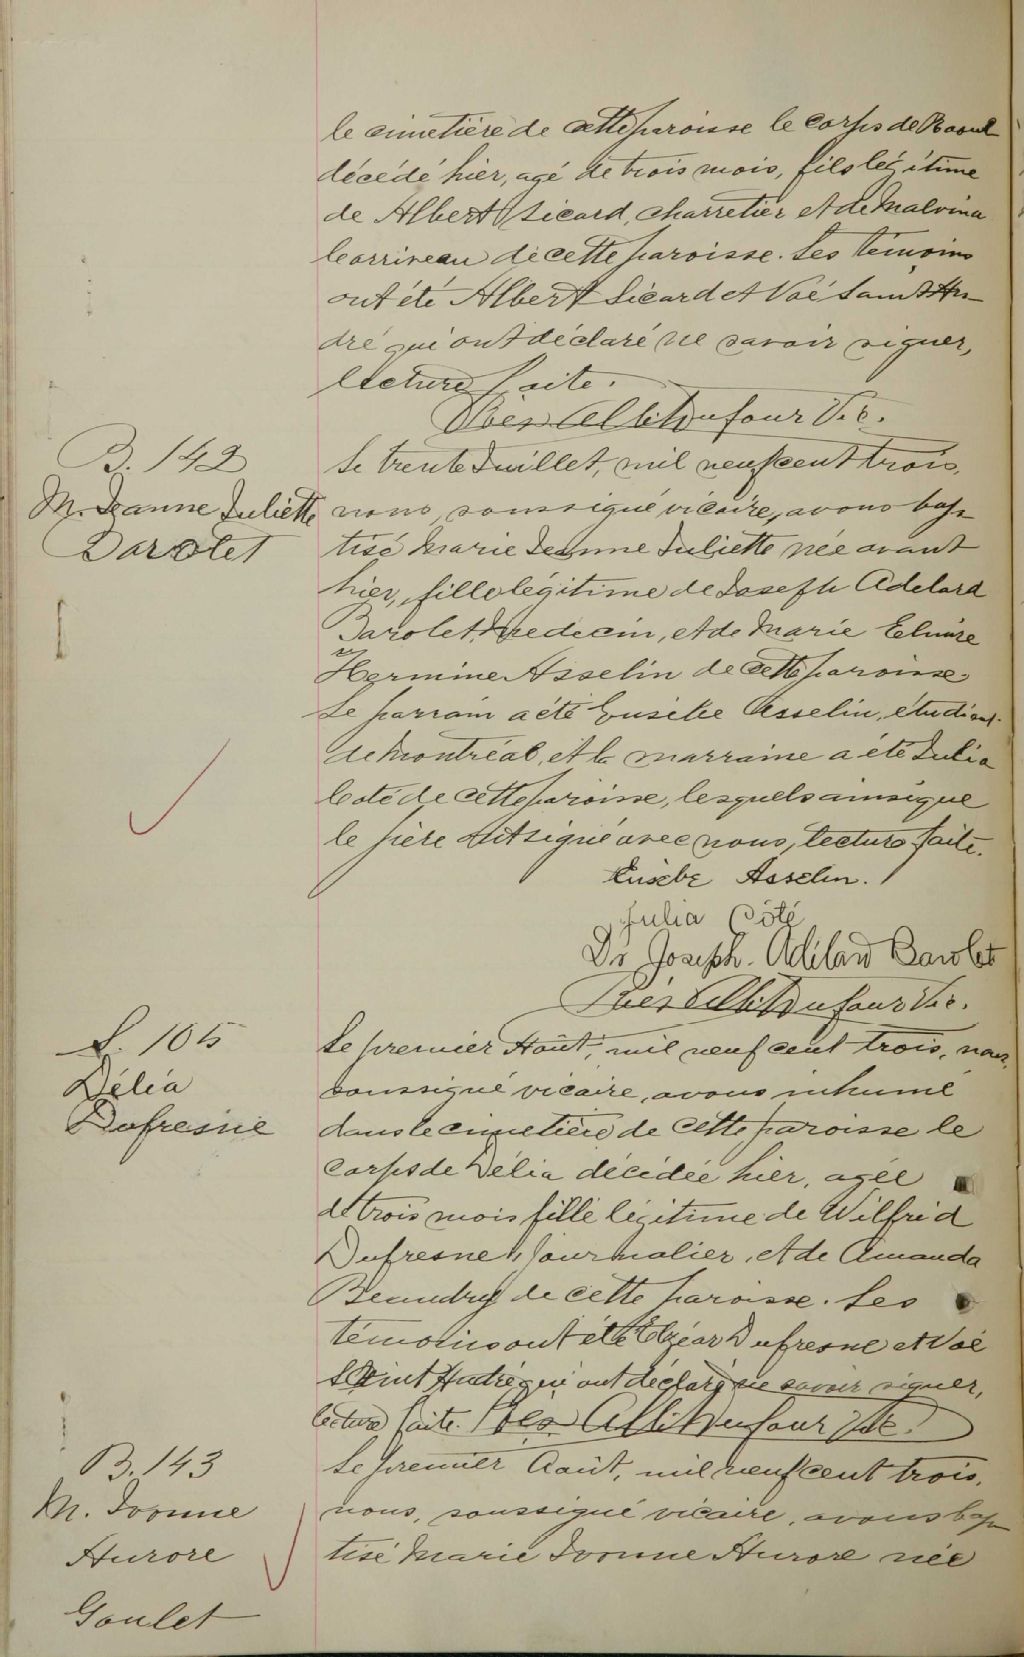 le cimetière de cette paroisse le corps de Raoul
décédé hier, agé de trois mois, fils légitime
de Albert Sicard, charretier et de Malvina
Corriveau de cette paroisse. Les témoins
ont été Albert Sicard et Noé Saint An-
dré qui ont déclaré ne savoir signer,
lecture faite.
Dufour Vic.
B. 142
M. Jeanne Juliette
Barolet
Le trente Juillet, mil neuf cent trois,
nous, soussigné vicaire, avons bap-
tisé Marie Jeanne Juliette née avant
hier, fille légitime de Joseph Adelard
Barolet, Médecin, et de Marie Elmire
Hermine Asselin de cette paroisse.
Le parrain a été Eusèbe Asselin, étudiant
de Montréal, et la marraine a été Julia
Coté de cette paroisse, lesquels ainsi que
le père ont signé avec nous, lecture faite.
Eusèbe Asselin.
Julia Côté
Dr Joseph. Adélard Barolet
Dufour Vic.
S. 105
Délia
Dufresne
Le premier Août, mil neuf cent trois, nous,
soussigné vicaire, avons inhumé
dans le cimetière de cette paroisse le
corps de Délia décédée hier, agée
de trois mois fille légitime de Wilfrid
Dufresne, journalier, et de Amanda
Beaudry de cette paroisse. Les
témoins ont été Elzéar Dufresne et Noé
Saint André qui ont déclaré ne savoir signer,
lecture faite. Dufour Vic.
B. 143
M. Ivonne
Aurore
Goulet
Le premier Août, mil neuf cent trois,
nous, soussigné vicaire, avons bap-
tisé Marie Ivonne Aurore née